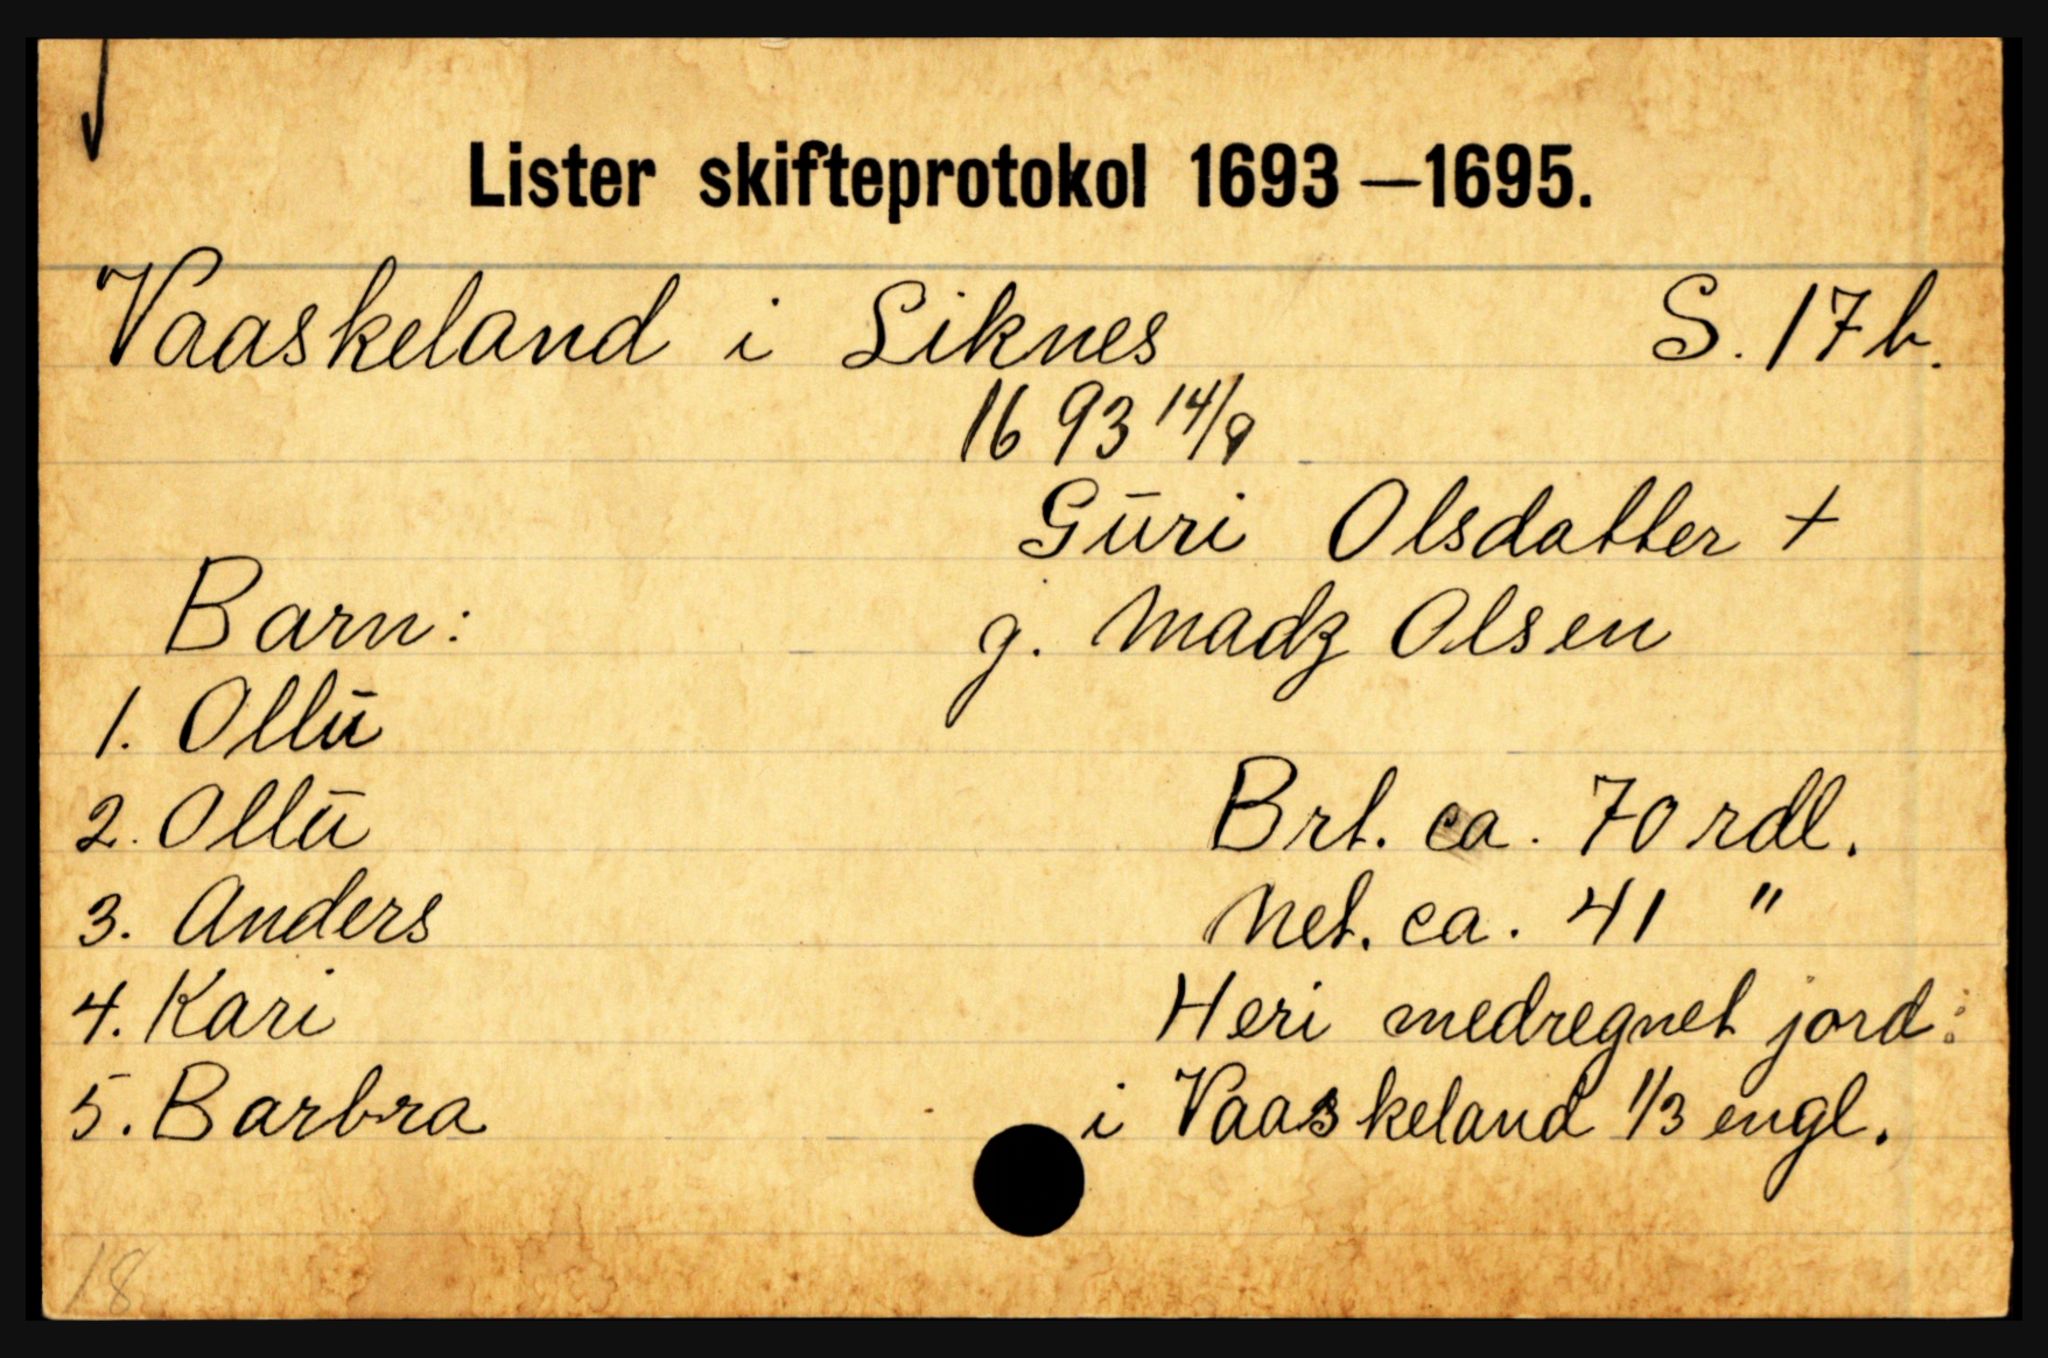 Lister skifteprotokol 1693—1695.
Vaaskeland i Liknes S. 17 b.
1693 14/9
Gūri Olsdatter +
Barn: g. Madz Olsen
1. Ollū
2. Ollū Brt. ca. 70 rdl.
3. Anders Net. ca. 41 "
4. Kari Heri medregnet jord:
5. Barbra i Vaaskeland 1/3 engl.
18